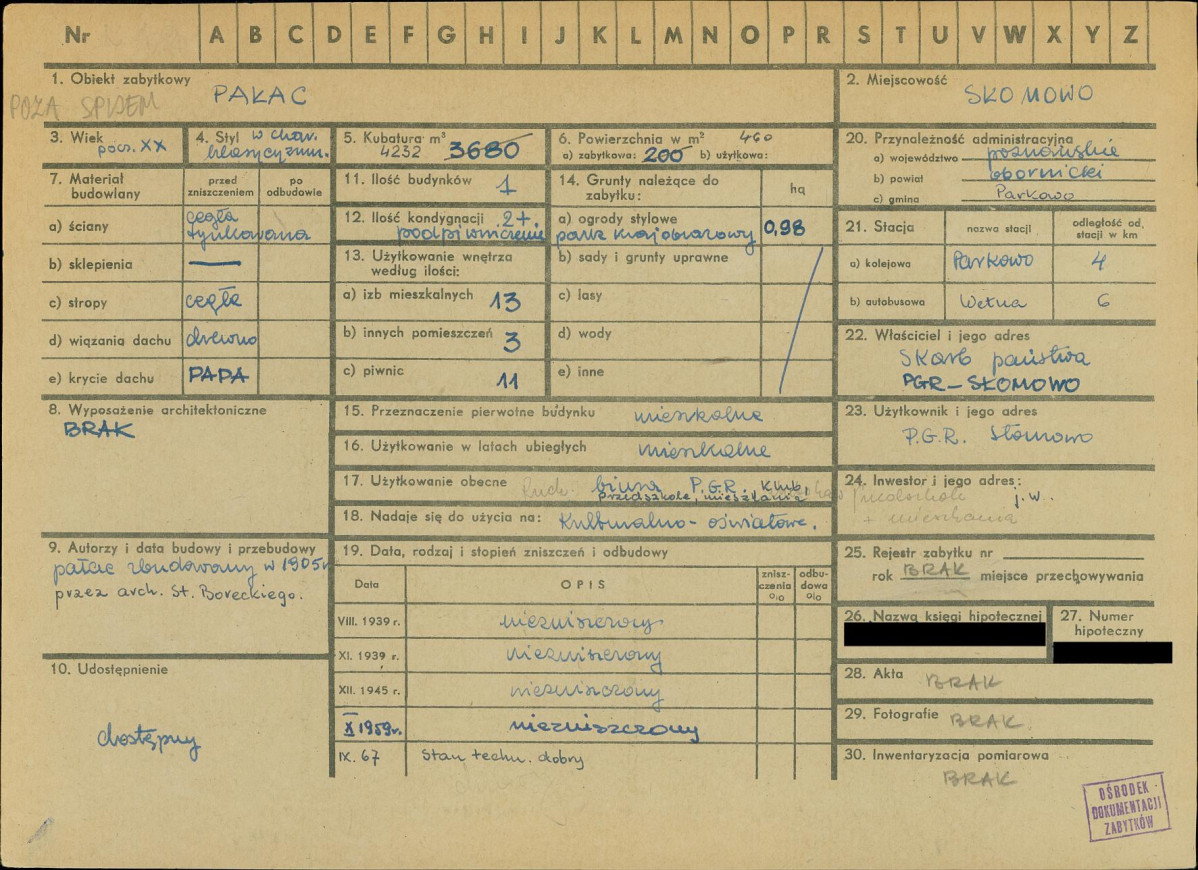 Nr A B C D E F G H I J K L M N O P R S T U V W X Y Z
1. Obiekt zabytkowy
POZA SPISEM PAŁAC
2. Miejscowość
SŁOMOWO
3. Wiek
pocz. XX
4. Styl w char.
klasycyzm.
5. Kubatura m³
4252 3680
6. Powierzchnia w m² 460
a) zabytkowa: 200 b) użytkowa:
7. Materiał budowlany
przed zniszczeniem
po odbudowie
a) ściany cegła
tynkowana
b) sklepienia —
c) stropy cegła
d) wiązania dachu drewno
e) krycie dachu PAPA
8. Wyposażenie architektoniczne
BRAK
9. Autorzy i data budowy i przebudowy
pałac zbudowany w 1905r
przez arch. St. Boreckiego.
10. Udostępnienie
dostępny
11. Ilość budynków 1
12. Ilość kondygnacji 2+
podpiwniczenie
13. Użytkowanie wnętrza
według ilości:
a) izb mieszkalnych 13
b) innych pomieszczeń 3
c) piwnic 11
14. Grunty należące do
zabytku:
hq
a) ogrody stylowe
park krajobrazowy 0,98
b) sady i grunty uprawne
c) lasy
d) wody
e) inne
15. Przeznaczenie pierwotne budynku mieszkalne
16. Użytkowanie w latach ubiegłych mieszkalne
17. Użytkowanie obecne biura P.G.R. Klub,
przedszkole, mieszkania
18. Nadaje się do użycia na: Kulturalno-oświatowe.
19. Data, rodzaj i stopień zniszczeń i odbudowy
Data OPIS zniszczenia % odbudowa %
VIII. 1939 r. niezniszczony
XI. 1939 r. niezniszczony
XII. 1945 r. niezniszczony
X 1959r. niezniszczony
IX. 67 Stan techn. dobry
20. Przynależność administracyjna
a) województwo poznańskie
b) powiat obornicki
c) gmina Parkowo
21. Stacja
nazwa stacji
odległość od stacji w km
a) kolejowa Parkowo 4
b) autobusowa Wełna 6
22. Właściciel i jego adres
Skarb państwa
PGR – SŁOMOWO
23. Użytkownik i jego adres
P.G.R. Słomowo
24. Inwestor i jego adres:
przedszkole j.w.
+ mieszkania
25. Rejestr zabytku nr
rok BRAK miejsce przechowywania
26. Nazwa księgi hipotecznej
27. Numer
hipoteczny
28. Akta BRAK
29. Fotografie BRAK.
30. Inwentaryzacja pomiarowa
BRAK
OŚRODEK
DOKUMENTACJI
ZABYTKÓW